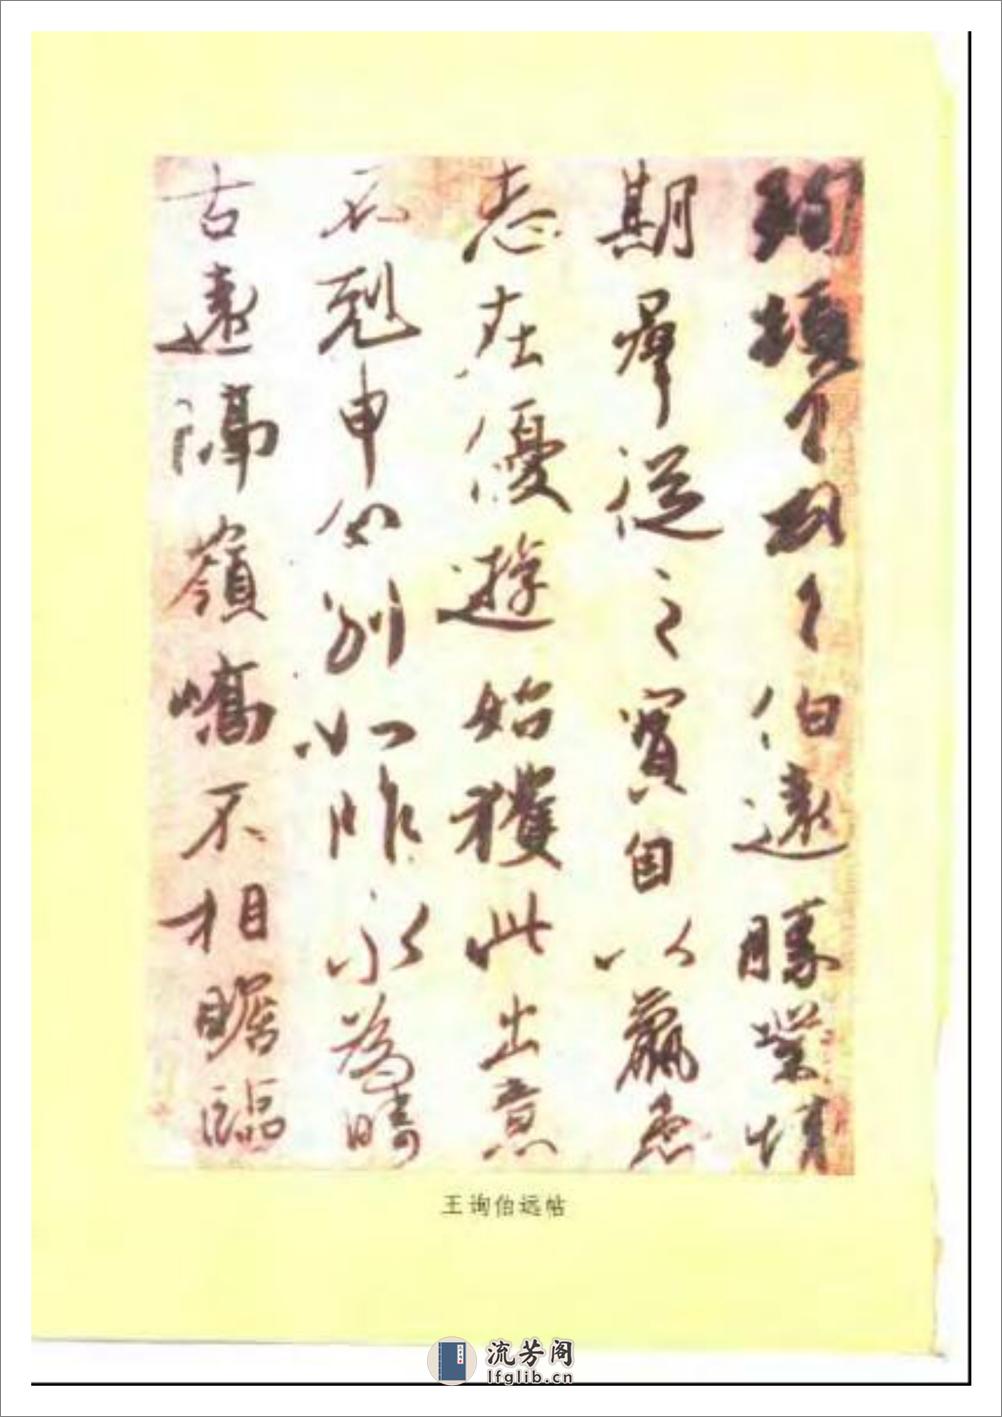 珣頓首頓首伯遠勝業情
期羣從之寶自以羸患
志在優遊始獲此出意
不剋申分別如昨永為疇
古遠隔嶺嶠不相瞻臨
王询伯远帖
流芳阁
lfglib.cn